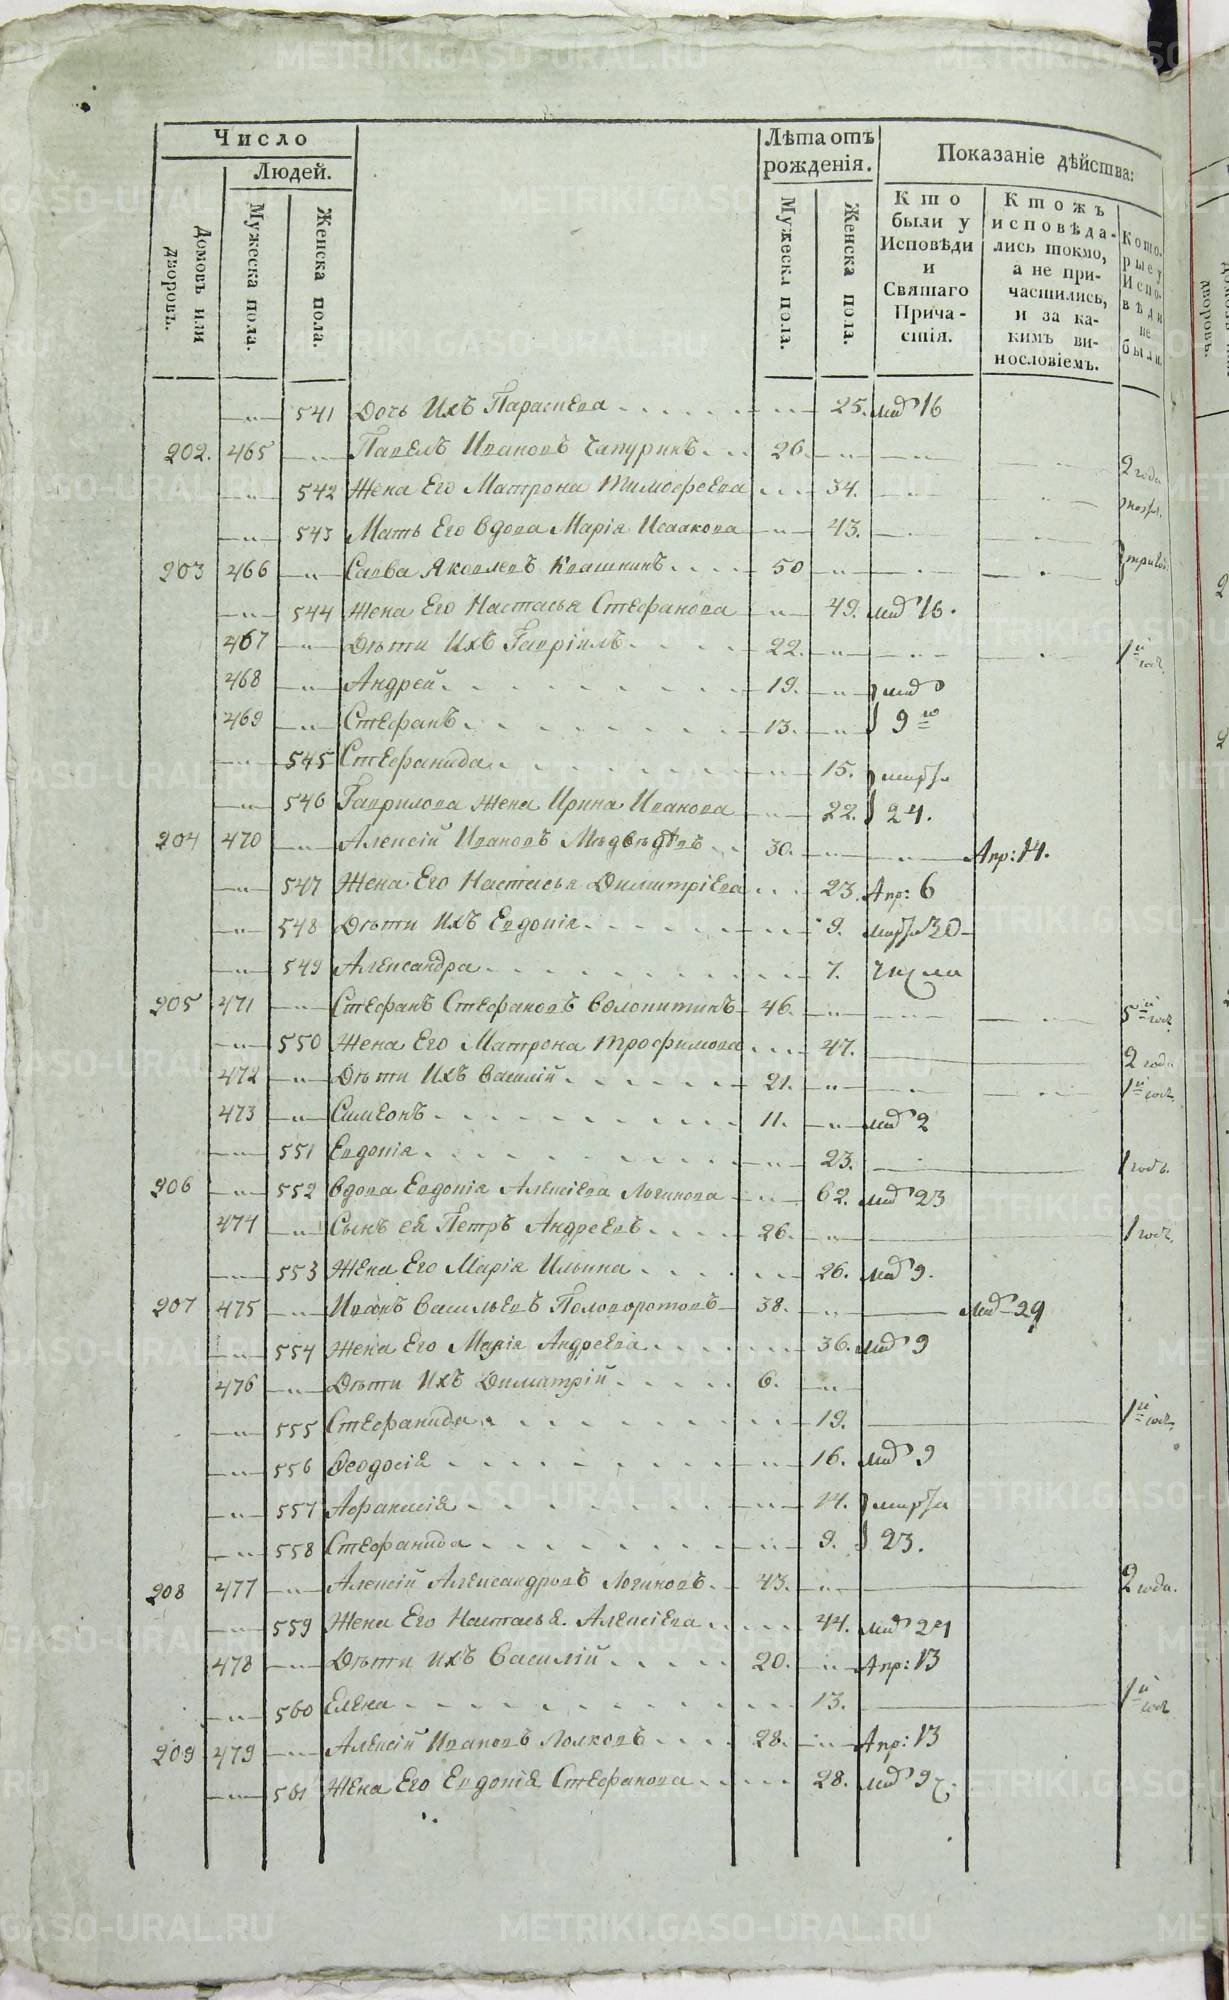 Число
Лѣта отъ рожденія.
Показаніе дѣйства:
Людей.
Домовъ или дворовъ.
Мужеска пола.
Женска пола.
Мужеска пола.
Женска пола.
Кто были у Исповѣди и Святаго Прича-стія.
Ктожъ исповѣда-лись токмо, а не при-частились, и за ка-кимъ ви-нословіемъ.
Кото-рые у Испо-вѣди не были.
541 Дочь Ихъ Параскева 25. 16
202. 465 Павелъ Ивановъ Чапуринъ 26. 2 года
542 Жена Его Матрона Тимофеева 34.
543 Мать Его вдова Марія Исаакова 43.
203 466 Савва Яковлевъ Квашнинъ 50
544 Жена Его Настасья Стефанова 49. 16.
467 Дѣти Ихъ Гавріилъ 22. 1й годъ
468 Андрей 19.
469 Стефанъ 13. 9го
545 Стефанида 15. марта
546 Гаврилова Жена Ирина Иванова 22. 24.
204 470 Алексій Ивановъ Мѣдвѣдѣвъ 30. Апр: 14.
547 Жена Его Настасья Димитріева 23. Апр: 6
548 Дѣти Ихъ Евдокія 9. марта 30
549 Александра 7. числа
205 471 Стефанъ Стефановъ Волокитинъ 46. 5й годъ
550 Жена Его Матрона Трофимова 47. 2 года
472 Дѣти Ихъ Василій 21. 1й годъ
473 Симеонъ 11. 2
551 Евдокія 23. 1 годъ
206 552 вдова Евдокія Алексіева Логинова 62. 23
474 Сынъ ея Петръ Андреевъ 26. 1 годъ
553 Жена Его Марія Ильина 26. 9.
207 475 Иванъ Васильевъ Половоротовъ 38. 29
554 Жена Его Марія Андреева 36. 9
476 Дѣти Ихъ Димитрій 6.
555 Стефанида 19. 1й годъ
556 Ѳеодосія 16. 9
557 Афанасія 14. марта
558 Стефанида 9. 23.
208 477 Алексій Александровъ Логиновъ 43. 2 года.
559 Жена Его Настасья Алексіева 44. 24
478 Дѣти ихъ Василій 20. Апр: 13
560 Елена 13. 1й годъ
209 479 Алексій Ивановъ Волковъ 28. Апр: 13
561 Жена Его Евдокія Стефанова 28. 9
METRIKI.GASO-URAL.RU